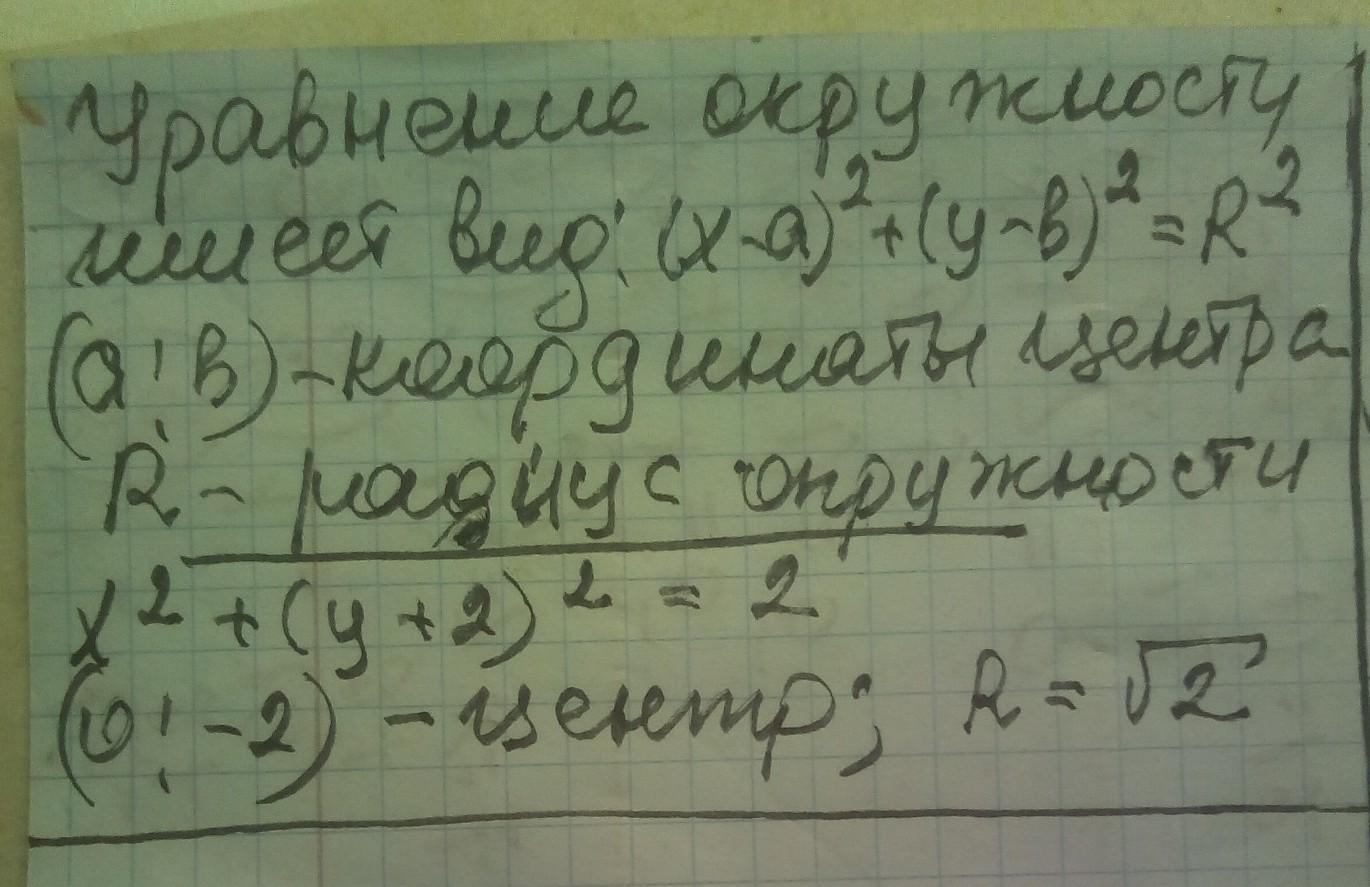 Уравнение окружносту
имеет вид: (x-a)² + (y-b)² = R²
(a; b) - координаты центра
R - радиус окружности
x² + (y + 2)² = 2
(0; -2) - центр; R = √2